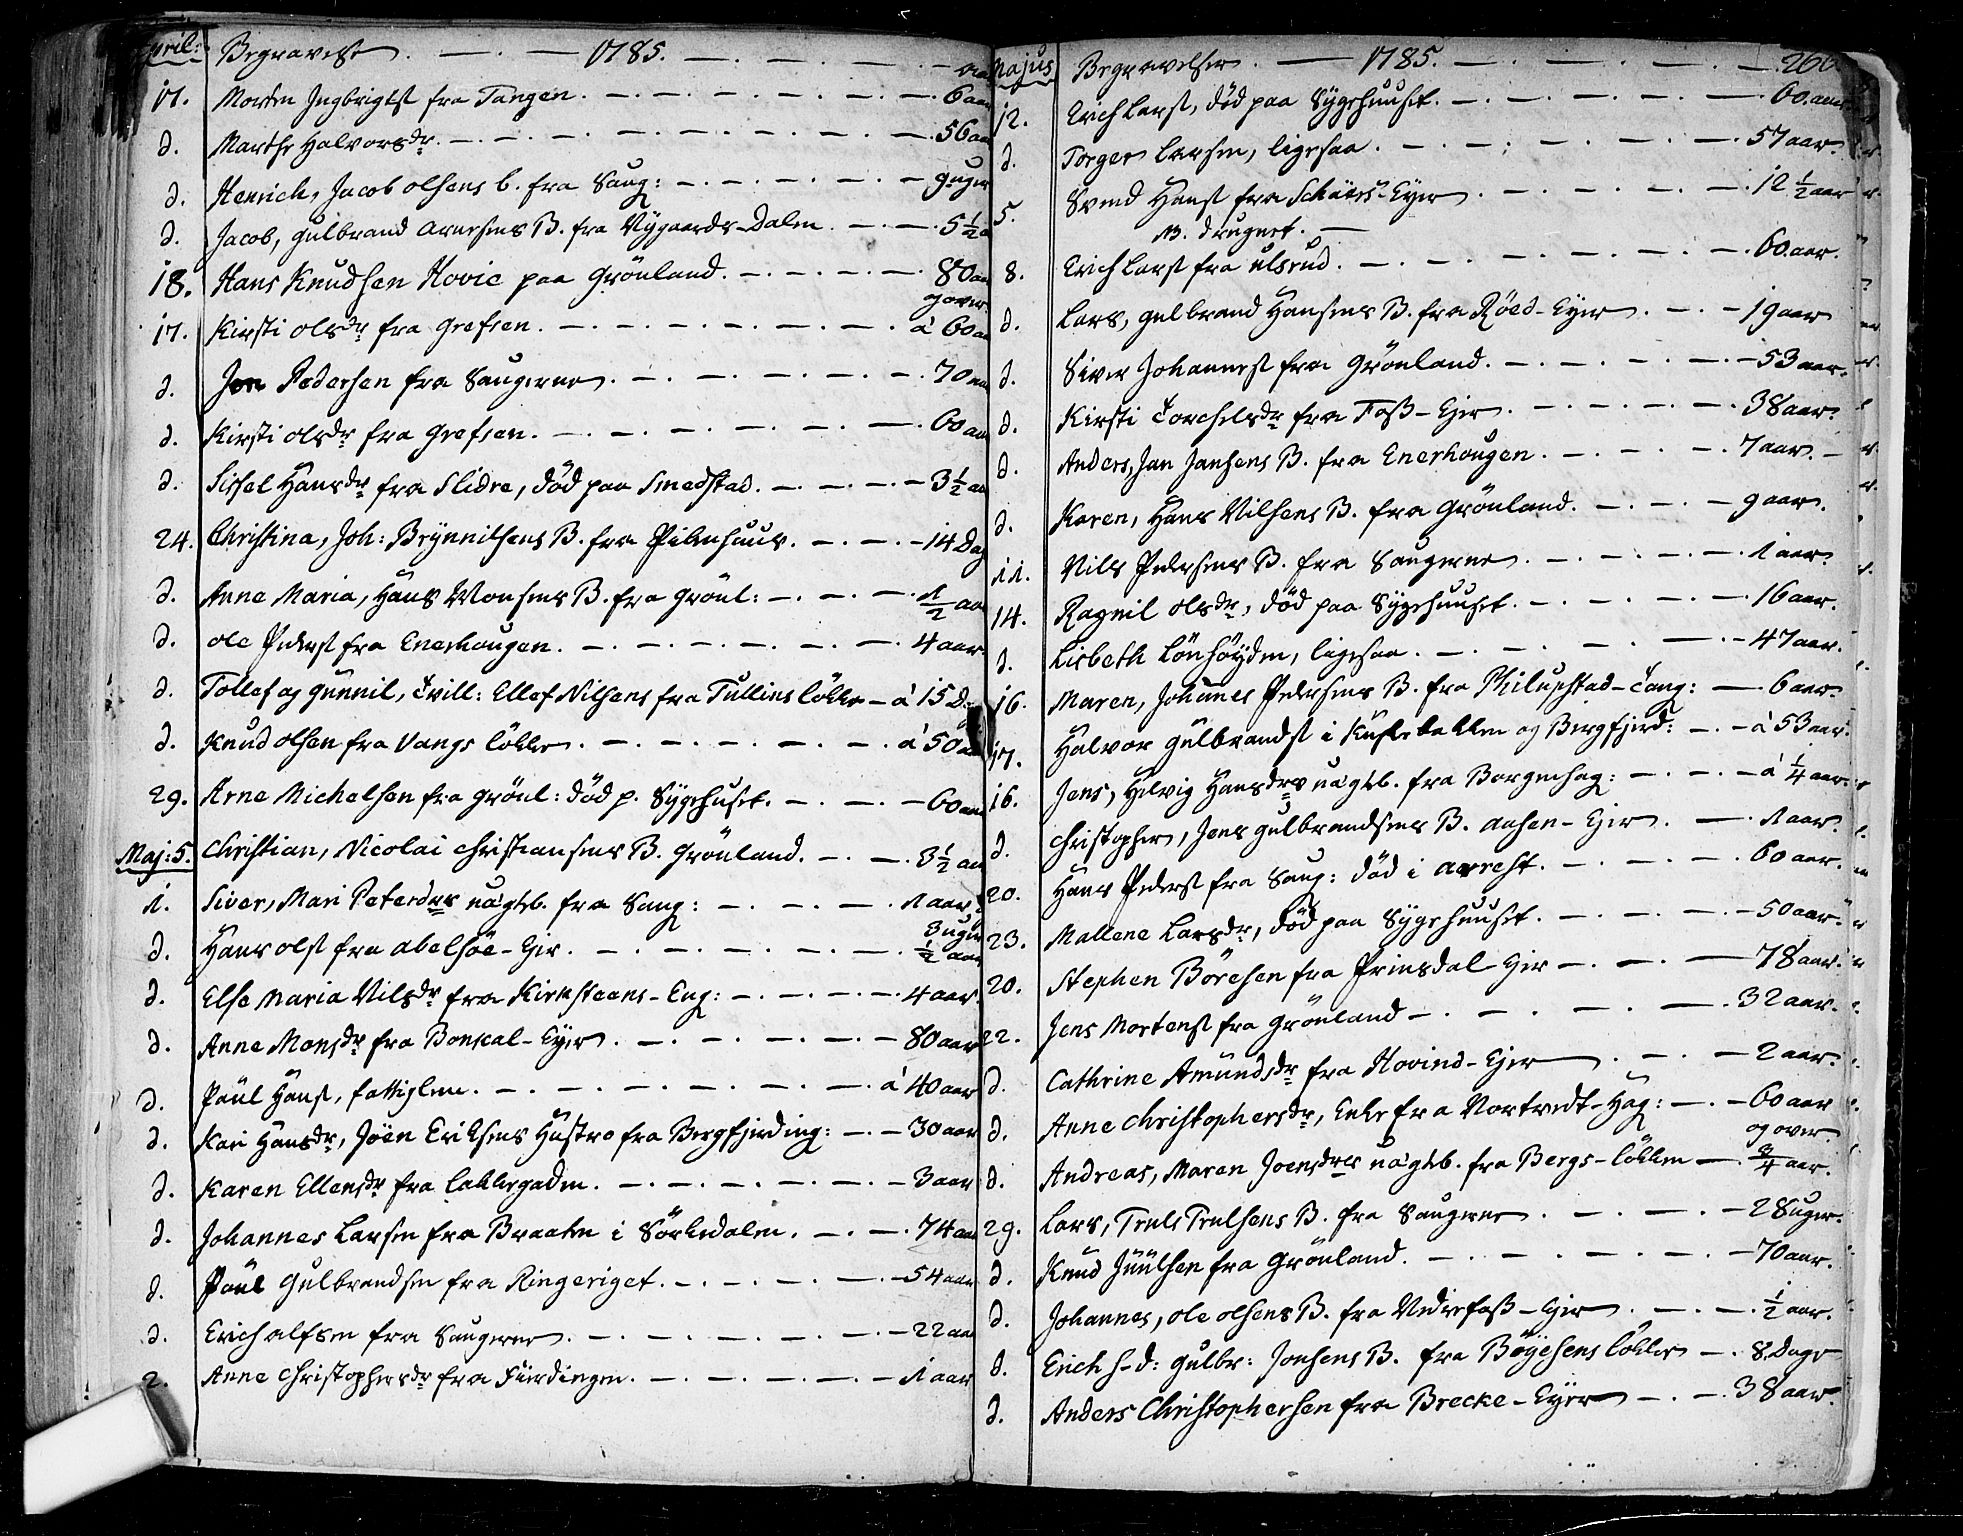 April: Begravelser 1785. aar
17. Morten Jngbrigtst fra Tangen. 6 aar
d. Marthe Halvorsdr. 56 aar
d. Henrich, Jacob olsens b. fra Saug: 9 uger
d. Jacob, gulbrand Arnesens B. fra Nygaards-Dalen 5 1/2 a
18. Hans Knudsen Hovie paa Grönland. 80 aar
og over
17. Kirsti olsdr fra Grefsen. á 60 aar
d. Jon Pedersen fra Saugerne. 70 aar
d. Kirsti olsdr fra Grefsen. 60 aar
d. Sissel Hansdr fra Slidre, död paa Smedstad. 3 1/2 aar
24. Christina, Joh: Brynnilsens B. fra Pilenhuus. 14 Dag
d. Anne Maria, Hans Monsens B. fra Grönl: 1/2 aar
d. ole Pederst fra Enerhougen. 4 aar
d. Tollef og gunnil, tvill: Ellef Nilsens fra Tullins lökke á 15 D.
d. Knud olsen fra Vangs lökke. á 50 aar
29. Arne Michelsen fra Grönl: död p. Sygehuset. 60 aar
Maj: 5. Christian, Nicolai Christiansens B. Grönland. 3 1/2 aar
1. Siver, Mari Petersdrs uægteb. fra Saug: 1 aar
3 uger
d. Hans olst fra Abelsöe-Eier. 1/2 aar
d. Else Maria Nilsdr fra Kirksteens-Eng: 4 aar
d. Anne Monsdr fra Bonscal-Eyer. 80 aar
d. Poul Hanst, fattiglem. á 40 aar
d. Kari Hansdr, Jöen Eriksens Hustro fra Bergfjerding: 30 aar
d. Karen Ellensdr fra Lakkegaden. 3 aar
d. Johannes Larsen fra Braaten i Sörkedalen. 74 aar
d. Poul Gulbrandsen fra Ringeriget. 54 aar
d. Erich alfsen fra Saugerne. 22 aar
2. Anne Christophersdr fra Fierdingen. 1 aar
Majus Begravelser. 1785. 266
12. Erich Larst, död paa Sygehuuset. 60. aar
d. Torger Larsen, ligesaa. 57 aar.
5. Svend Hanst fra Schäers-Eyer 12 1/2 aar
NB. drugnet.
8. Erich Larst fra ulsrud. 60. aar.
d. Lars, gulbrand Hansens B. fra Röed-Eyer. 19 aar
d. Siver Johannest fra Grönland. 53 aar.
d. Kirsti Torchelsdr fra Foss-Eier. 38 aar.
d. Anders, Jan Jansens B. fra Enerhougen. 7 aar.
d. Karen, Hans Nilsens B. fra Grönland. 9 aar.
11. Nils Pedersens B. fra Saugerne. 1 aar.
14. Ragnil olsdr, död paa Sygehuuset. 16 aar.
d. Lisbeth Lönhöyden, ligesaa. 47 aar.
16. Maren, Johanes Pedersens B. fra Philipstad-Tang: 6 aar.
17. Halvor Gulbrandst i Kuslebakken og Bergfjerd: á 53 aar.
16. Jens, Helvig Hansdrs uægteb. fra Borgenhag: á 1/4 aar.
d. Christopher, Jens gulbrandsens B. aasen-Eier. 1 aar.
20. Hans Pederst fra Saug: död i arrest. 60 aar.
23. Mallene Larsdr, död paa Sygehuuset. 50 aar.
20. Stephen Böresen fra Prinsdal-Eier 78 aar.
22. Jens Mortenst fra Grönland 32 aar.
d. Cathrine Amundsdr fra Hovind-Eier. 2 aar.
d. Anne Christophersdr, Enke fra Nortvedt-Hag: 60 aar
og over.
d. Andreas, Maren Joensdrs uægteb. fra Bergs-lökken 3/4 aar.
29. Lars, Truls Trulsens B. fra Saugerne. 28 uger.
d. Knud Juulsen fra Grönland. 70 aar.
d. Johannes, ole olsens B. fra Nedrefoss-Eier. 1/2 aar.
d. Erich s-d: gulbr: Jonsens B. fra Böyesens lökke. 8. Dage
d. Anders Christophersen fra Brecke-Eyer 38 aar.